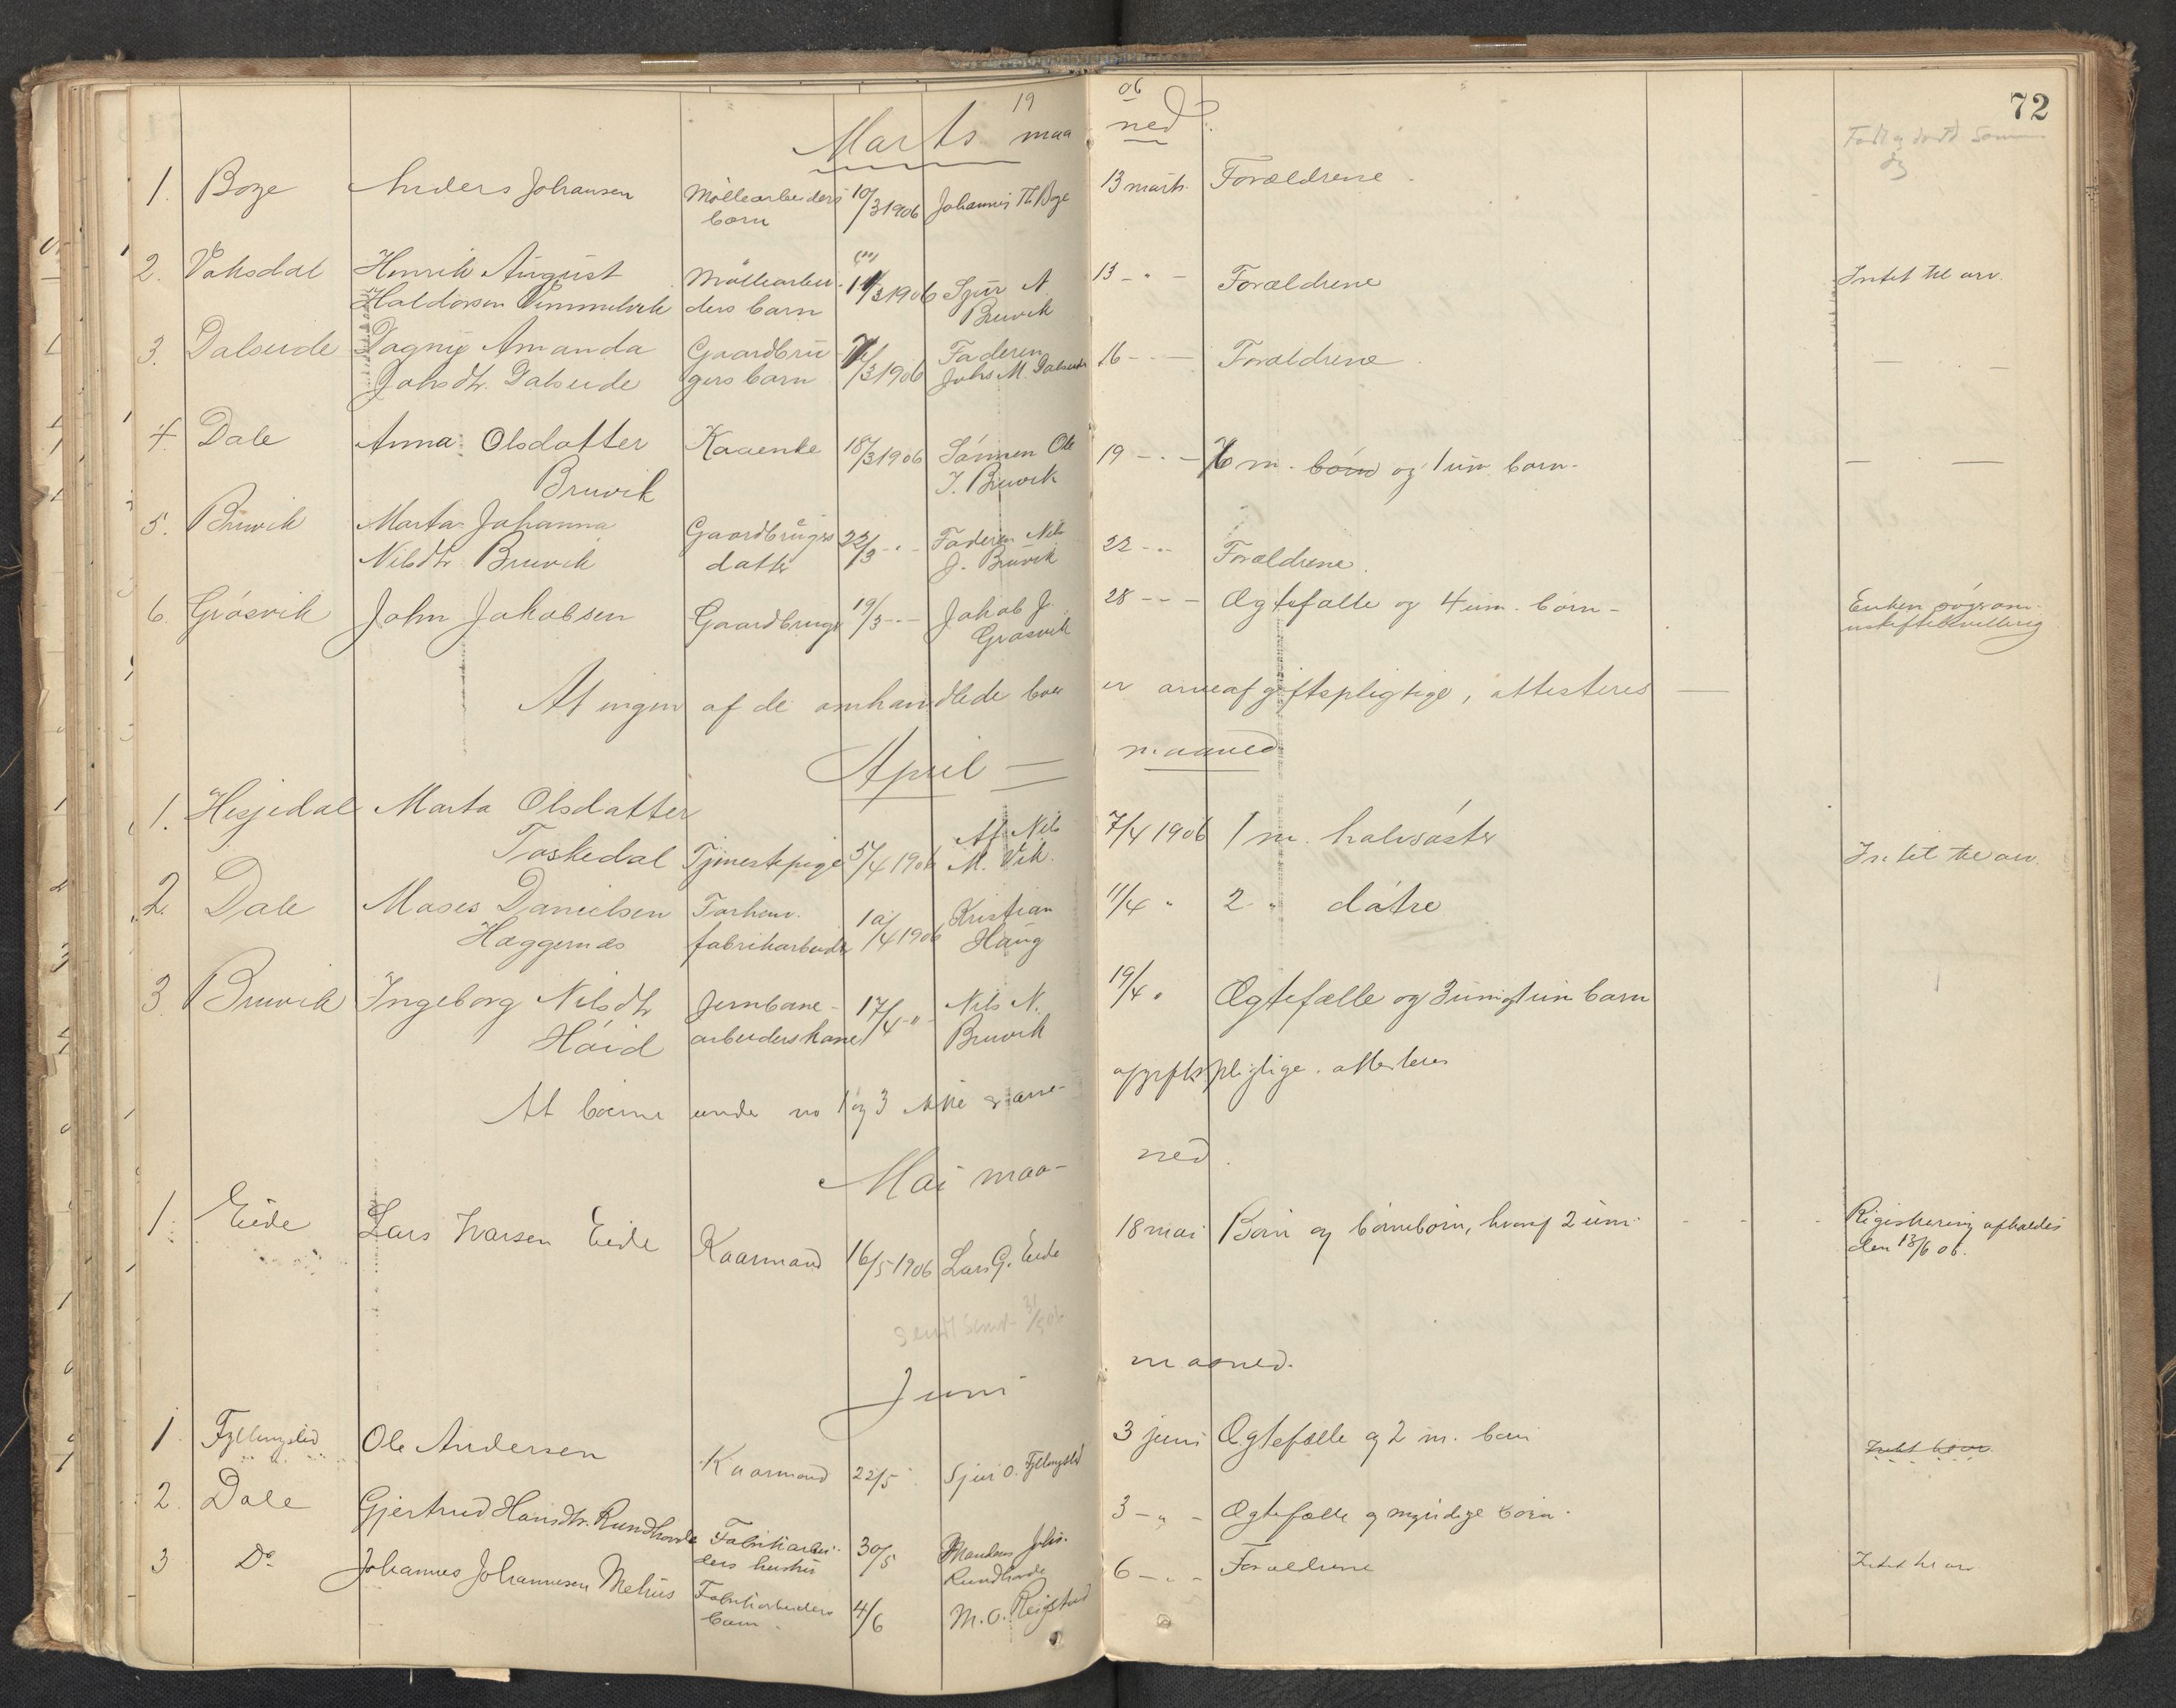 19 06
72
Marts maaned
Født og død samme
dg
1. Boge Anders Johansen Møllearbeiders 10/3 1906 Johannes Th Boge 13 marts. Forældrene
barn
2. Vaksdal Henrik August Møllearbei- 11/3 1906 Sjur A 13 - " - Forældrene Intet til arv.
Haldorsen ders barn Bruvik
3. Dalseide Dagny Amanda Gaardbru /3 1906 Faderen 16 - - - Forældrene — —
Johsdtr. Dalseide gers barn Johs M. Dalseide
4. Dale Anna Olsdatter Kaaenke 18/3 1906 Sönnen Ole 19 - " - 6 m. börn og 1 um barn. — —
Bruvik J. Bruvik
5. Bruvik Marta Johanna Gaardbrugers 22/3 - " - Faderen Nils 22 - " - Forældrene.
Nilsdtr Bruvik datter J. Bruvik
6. Gråsvik John Jakobsen Gaardbruger 19/3 - " - Jakob J. 28 - - - Ægtefælle og 4 um. börn - Enken søger om
Grøsvik uskiftebevilling
At ingen af de omhandlede boer er arveafgiftspligtige, attesteres —
April — maaned
1. Hesjedal Marta Olsdatter Af Nils 7/4 1906 1 m. halvsöster Intet til arv.
Toskedal Tjenestepige 5/4 1906 M. Vik.
2. Dale Moses Danielsen Forhenv. 10/4 1906 Kristian 11/4 " 2 " dötre
Hæggernæs fabrikarbeider Haug
3. Bruvik Ingeborg Nilsdtr Jernbane- 17/4 - " - Nils N. 19/4 " Ægtefælle og 3 um barn
Höid arbeiders kone Bruvik
At boerne under no 1 og 3 ikke er arve- afgiftspligtige. attesteres
Mai maa- ned.
1. Eide Lars Ivarsen Eide Kaarmand 16/5 1906 Lars G. Eide 18 mai Börn og börnebörn, hvoraf 2 um. Registrering afholdes
den 13/6 06.
sendt 31/5 06
Juni maaned.
1. Fyllingslid Ole Andersen Kaarmand 22/5 Sjur O. Fyllingslid 3 juni Ægtefælle og 2 m. barn Intet til arv
2. Dale Gjertrud Hansdtr. Rundhovde Fabrikarbei- 30/5 Manden Johs. 3 - " - Ægtefælle og myndige börn.
ders hustru Rundhovde
3 Do Johannes Johannesen Melius Fabrikarbeiders 4/6 M. O. Reigstad 6 - " - Forældrene Intet til arv
barn